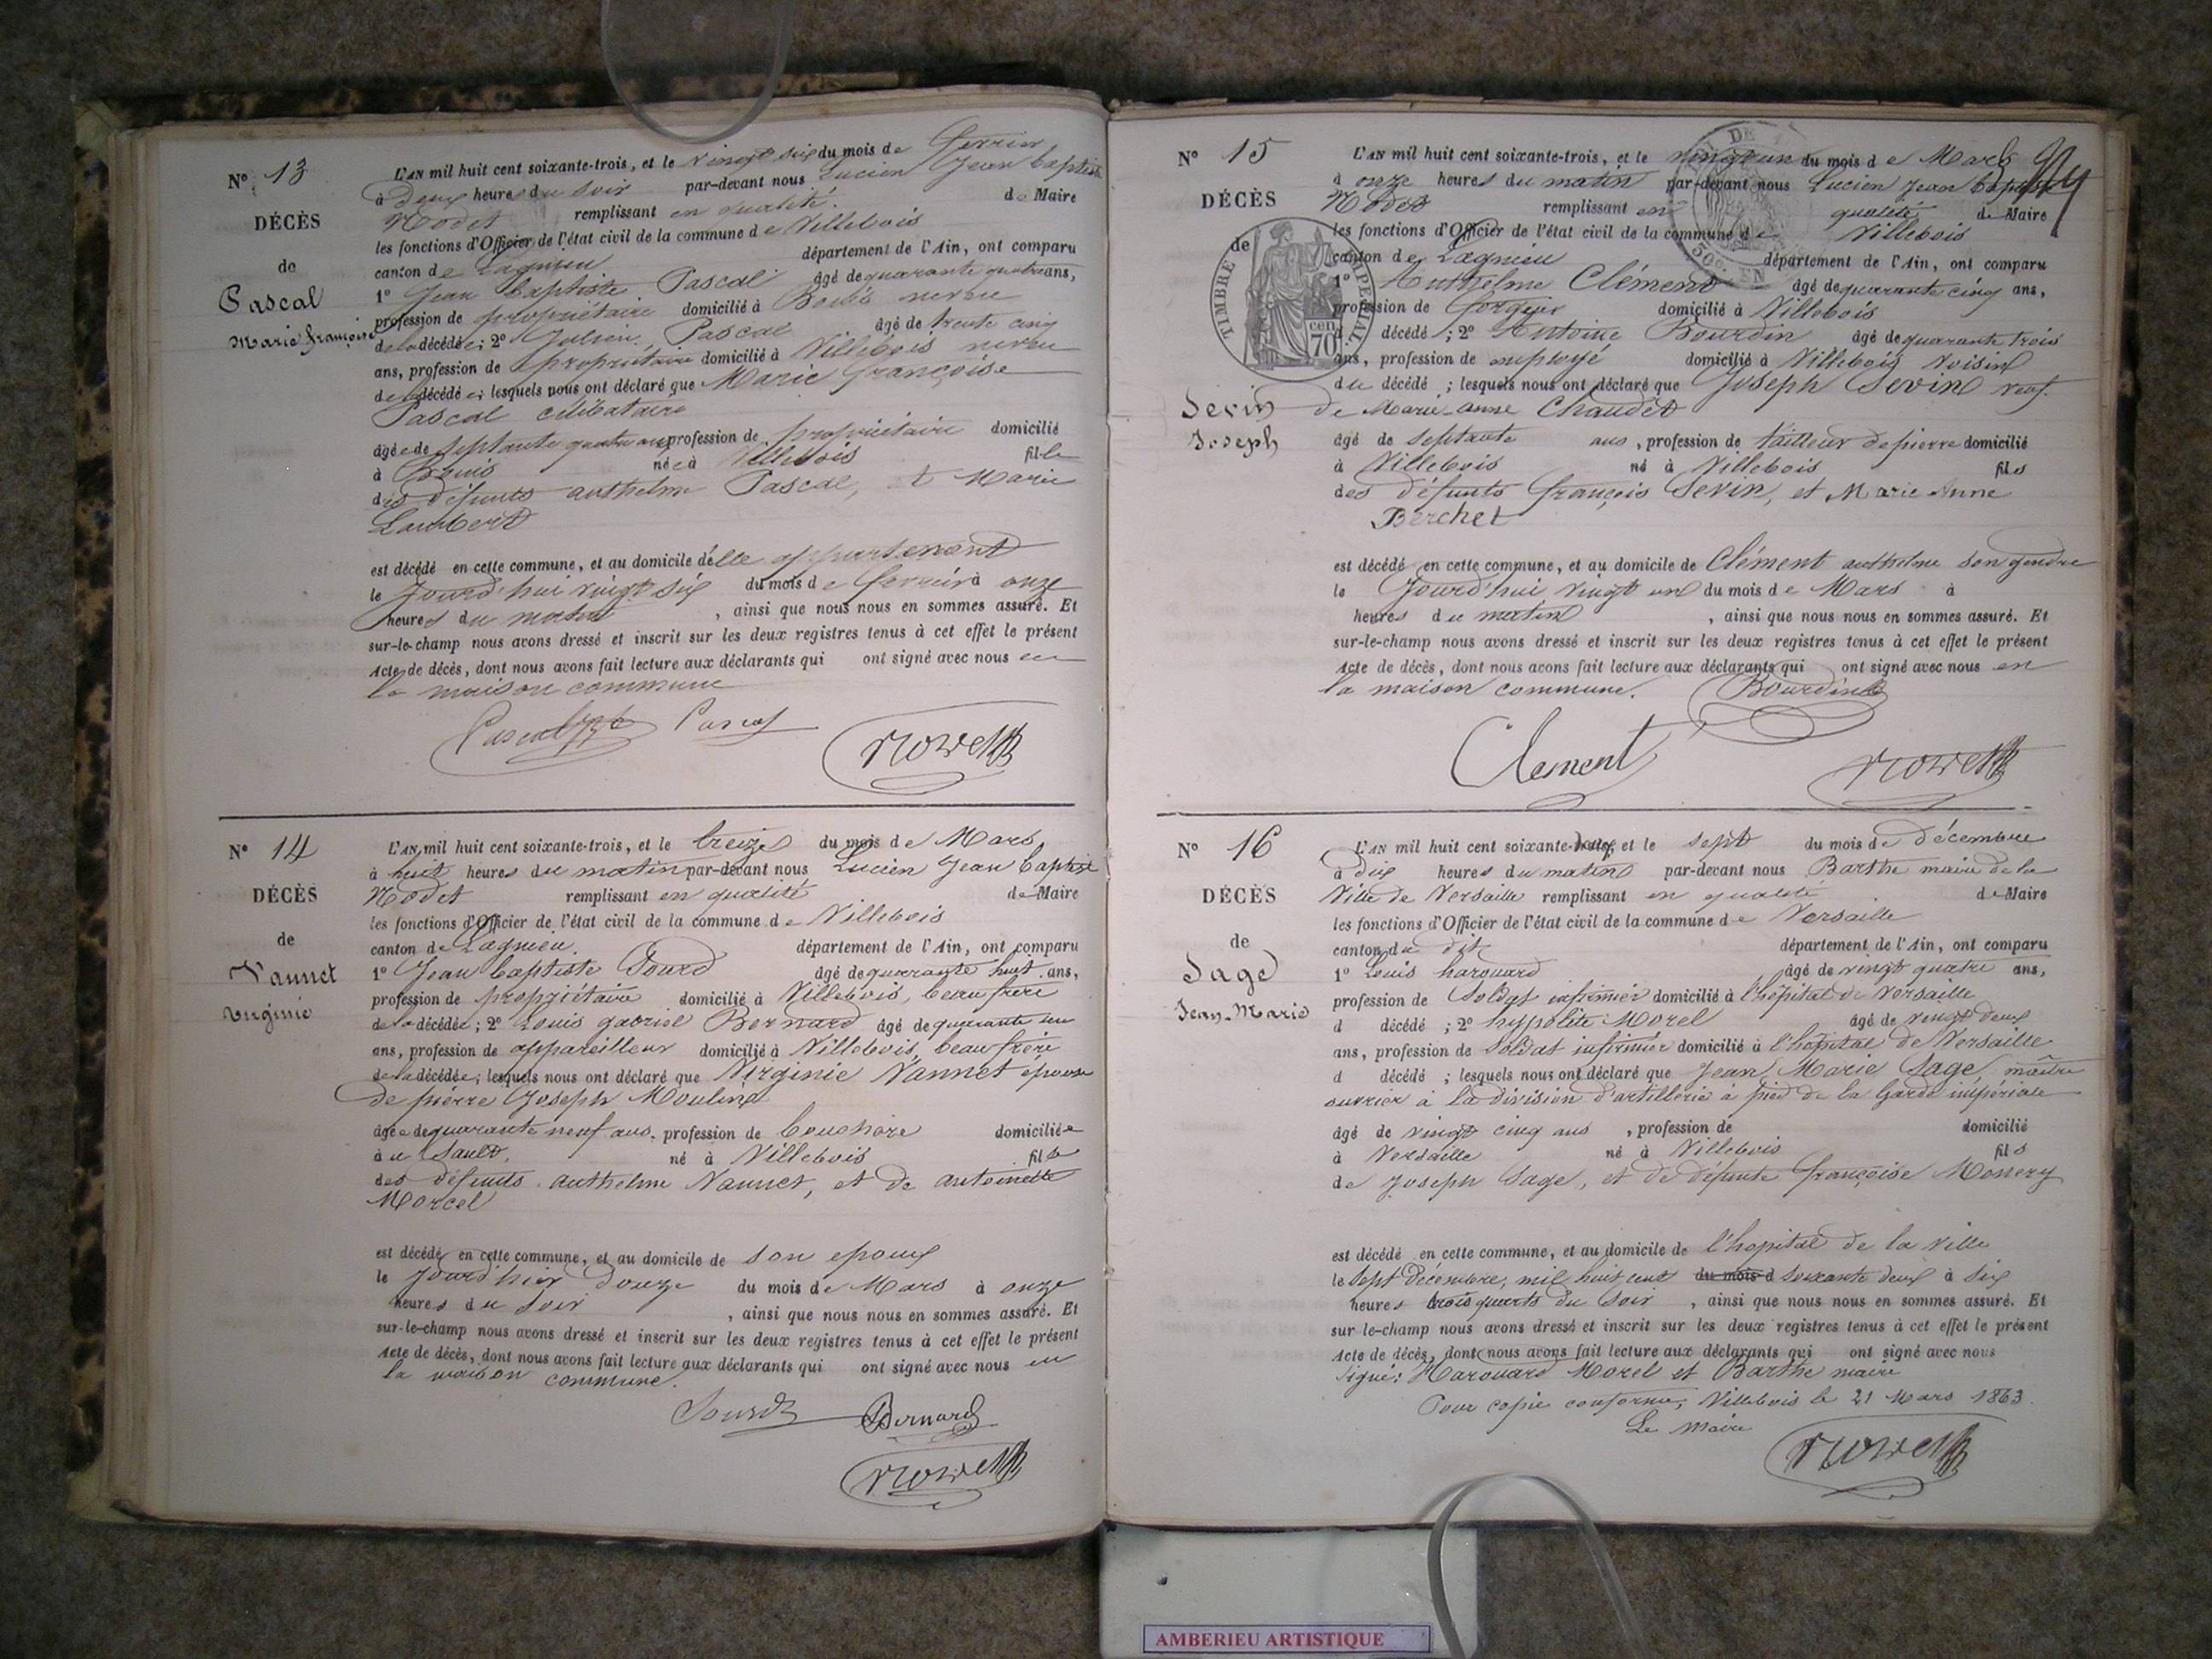 N° 13
DÉCÈS
de
Pascal
Marie françoise
L'AN mil huit cent soixante-trois, et le vingt six du mois de fevrier
à deux heures du soir par-devant nous Lucien Jean Baptiste
Nodet remplissant en qualité de Maire
les fonctions d'Officier de l'état civil de la commune de Villebois
canton de Lagnieu département de l'Ain, ont comparu
1° Jean Baptiste Pascal âgé de quarante quatre ans,
profession de propriétaire domicilié à Bouis neveu
de la décédée; 2° Julien Pascal âgé de trente cinq
ans, profession de propriétaire domicilié à Villebois neveu
de la décédée; lesquels nous ont déclaré que Marie Françoise
Pascal célibataire
âgée de septante quatre ans profession de propriétaire domicilié
à Bouis née à Villebois fille
des défunts anthelme Pascal, et Marie
Lambert
est décédé en cette commune, et au domicile d'elle appartenant
le Jourd'hui vingt six du mois de fevrier à onze
heures du matin , ainsi que nous nous en sommes assuré. Et
sur-le-champ nous avons dressé et inscrit sur les deux registres tenus à cet effet le présent
Acte de décès, dont nous avons fait lecture aux déclarants qui ont signé avec nous en
la maison commune
Pascal Pascal
Nodet
N° 14
DÉCÈS
de
Vannet
Virginie
L'AN mil huit cent soixante-trois, et le treize du mois de Mars
à huit heures du matin par-devant nous Lucien Jean Baptiste
Nodet remplissant en qualité de Maire
les fonctions d'Officier de l'état civil de la commune de Villebois
canton de Lagnieu département de l'Ain, ont comparu
1° Jean Baptiste Sourd âgé de quarante huit ans,
profession de propriétaire domicilié à Villebois, beau frère
de la décédée; 2° Louis gabriel Bernard âgé de quarante un
ans, profession de appareilleur domicilié à Villebois, beau frère
de la décédée; lesquels nous ont déclaré que Virginie Vannet epouse
de pierre Joseph Moulin
âgée de quarante neuf ans, profession de domiciliée
au Sault, né à Villebois fille
des défunts anthelme Vannet, et de antoinette
Morcel
est décédé en cette commune, et au domicile de son epoux
le Jourd'hier douze du mois de Mars à onze
heures du soir , ainsi que nous nous en sommes assuré. Et
sur-le-champ nous avons dressé et inscrit sur les deux registres tenus à cet effet le présent
Acte de décès, dont nous avons fait lecture aux déclarants qui ont signé avec nous en
la maison commune.
Sourd Bernard
Nodet
N° 15
DÉCÈS
de
TIMBRE IMPERIAL
cen 70
Sevin
Joseph
L'AN mil huit cent soixante-trois, et le vingt un du mois de Mars
à onze heures du matin par-devant nous Lucien Jean Baptiste
Nodet remplissant en qualité de Maire
les fonctions d'Officier de l'état civil de la commune de Villebois
canton de Lagnieu département de l'Ain, ont comparu
1° Anthelme Clément âgé de quarante cinq ans,
profession de domicilié à Villebois
d décédé ; 2° Antoine Bourdin âgé de quarante trois
ans, profession de employé domicilié à Villebois Voisin
du décédé ; lesquels nous ont déclaré que Joseph Sevin veuf
de Marie-anne Chaudet
âgé de septante ans , profession de tailleur de pierre domicilié
à Villebois né à Villebois fils
des défunts françois Sevin, et Marie Anne
Berchet
est décédé en cette commune, et au domicile de Clément anthelme son gendre
le Jourd'hui vingt un du mois de Mars à
heures du matin , ainsi que nous nous en sommes assuré. Et
sur-le-champ nous avons dressé et inscrit sur les deux registres tenus à cet effet le présent
Acte de décès, dont nous avons fait lecture aux déclarants qui ont signé avec nous en
la maison commune. Bourdin
Clement
Nodet
N° 16
DÉCÈS
de
Sage
Jean-Marie
L'AN mil huit cent soixante-deux, et le sept du mois de décembre
à dix heures du matin par-devant nous Barthe maire de la
Ville de Versaille remplissant en qualité de Maire
les fonctions d'Officier de l'état civil de la commune de Versaille
canton du dit département de l'Ain, ont comparu
1° Louis harouard âgé de vingt quatre ans,
profession de Soldat infirmier domicilié à l'hôpital de Versaille
d décédé ; 2° hyppolite Morel âgé de vingt deux
ans, profession de Soldat infirmier domicilié à l'hôpital de Versaille
d décédé ; lesquels nous ont déclaré que Jean Marie Sage, maître
ouvrier à la division d'artillerie à pied de la Garde impériale
âgé de vingt cinq ans , profession de domicilié
à Versaille né à Villebois fils
de Joseph Sage, et de défunte françoise Monery
est décédé en cette commune, et au domicile de l'hopital de la ville
le Sept Décembre, mil huit cent du mois d soixante deux à six
heures trois quarts du soir , ainsi que nous nous en sommes assuré. Et
sur le-champ nous avons dressé et inscrit sur les deux registres tenus à cet effet le présent
Acte de décès, dont nous avons fait lecture aux déclarants qui ont signé avec nous
Signé: Harouard Morel et Barthe maire
Pour copie conforme, Villebois le 21 Mars 1863.
Le Maire
Nodet
AMBERIEU ARTISTIQUE